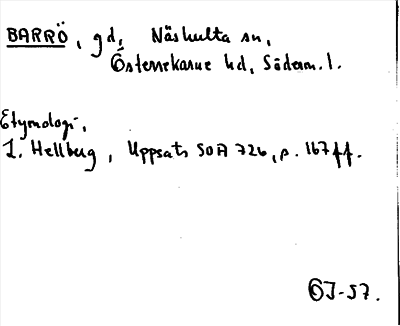 BARRÖ, gd, Näshulta sn,
Österrekarne hd, Söderm. l.
Etymologi,
L. Hellberg, Uppsats SOA 726, p. 167 ff.
OJ-57.